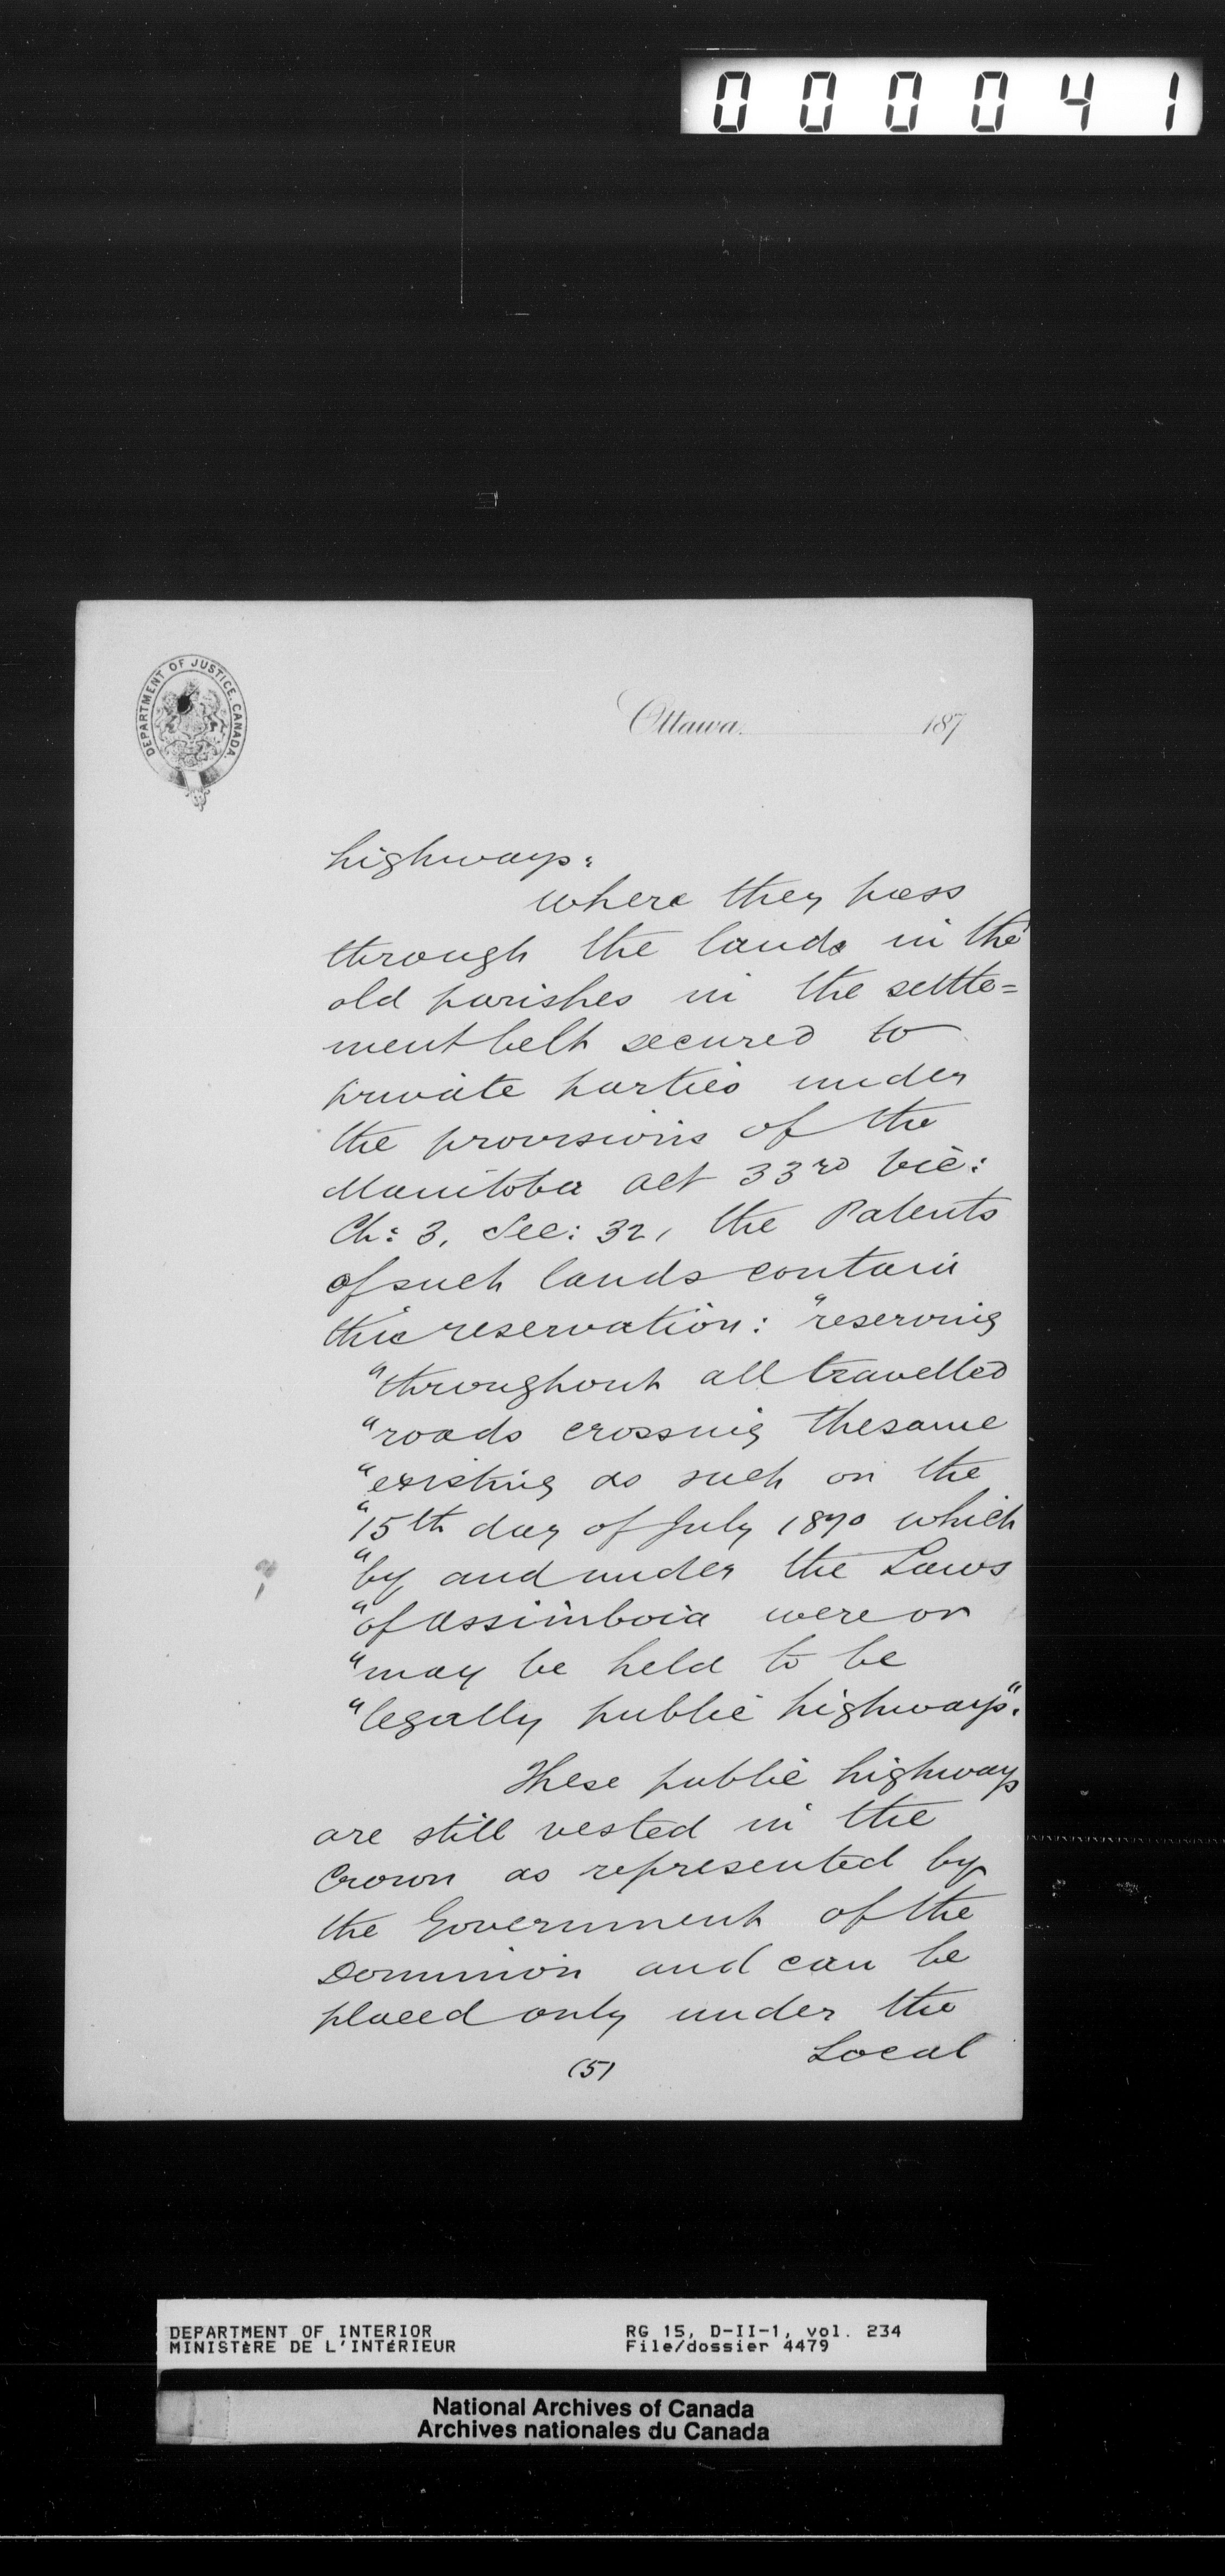 000041
DEPARTMENT OF JUSTICE. CANADA.
Ottawa. 187
highways:
Where they pass
through the lands in the
old parishes in the settle=
ment belt secured to
private parties under
the provisions of the
Manitoba Act 33rd Vic:
Ch: 3, Sec: 32, the Patents
of such lands contain
this reservation: "reserving
"throughout all travelled
"roads crossing the same
"existing as such on the
"15th day of July 1870 which
"by and under the Laws
"of Assiniboia were or
"may be held to be
"legally public highways".
These public highways
are still vested in the
Crown as represented by
the Government of the
Dominion and can be
placed only under the
Local
(5)
DEPARTMENT OF INTERIOR
MINISTÈRE DE L'INTÉRIEUR
RG 15, D-II-1, vol. 234
File/dossier 4479
National Archives of Canada
Archives nationales du Canada